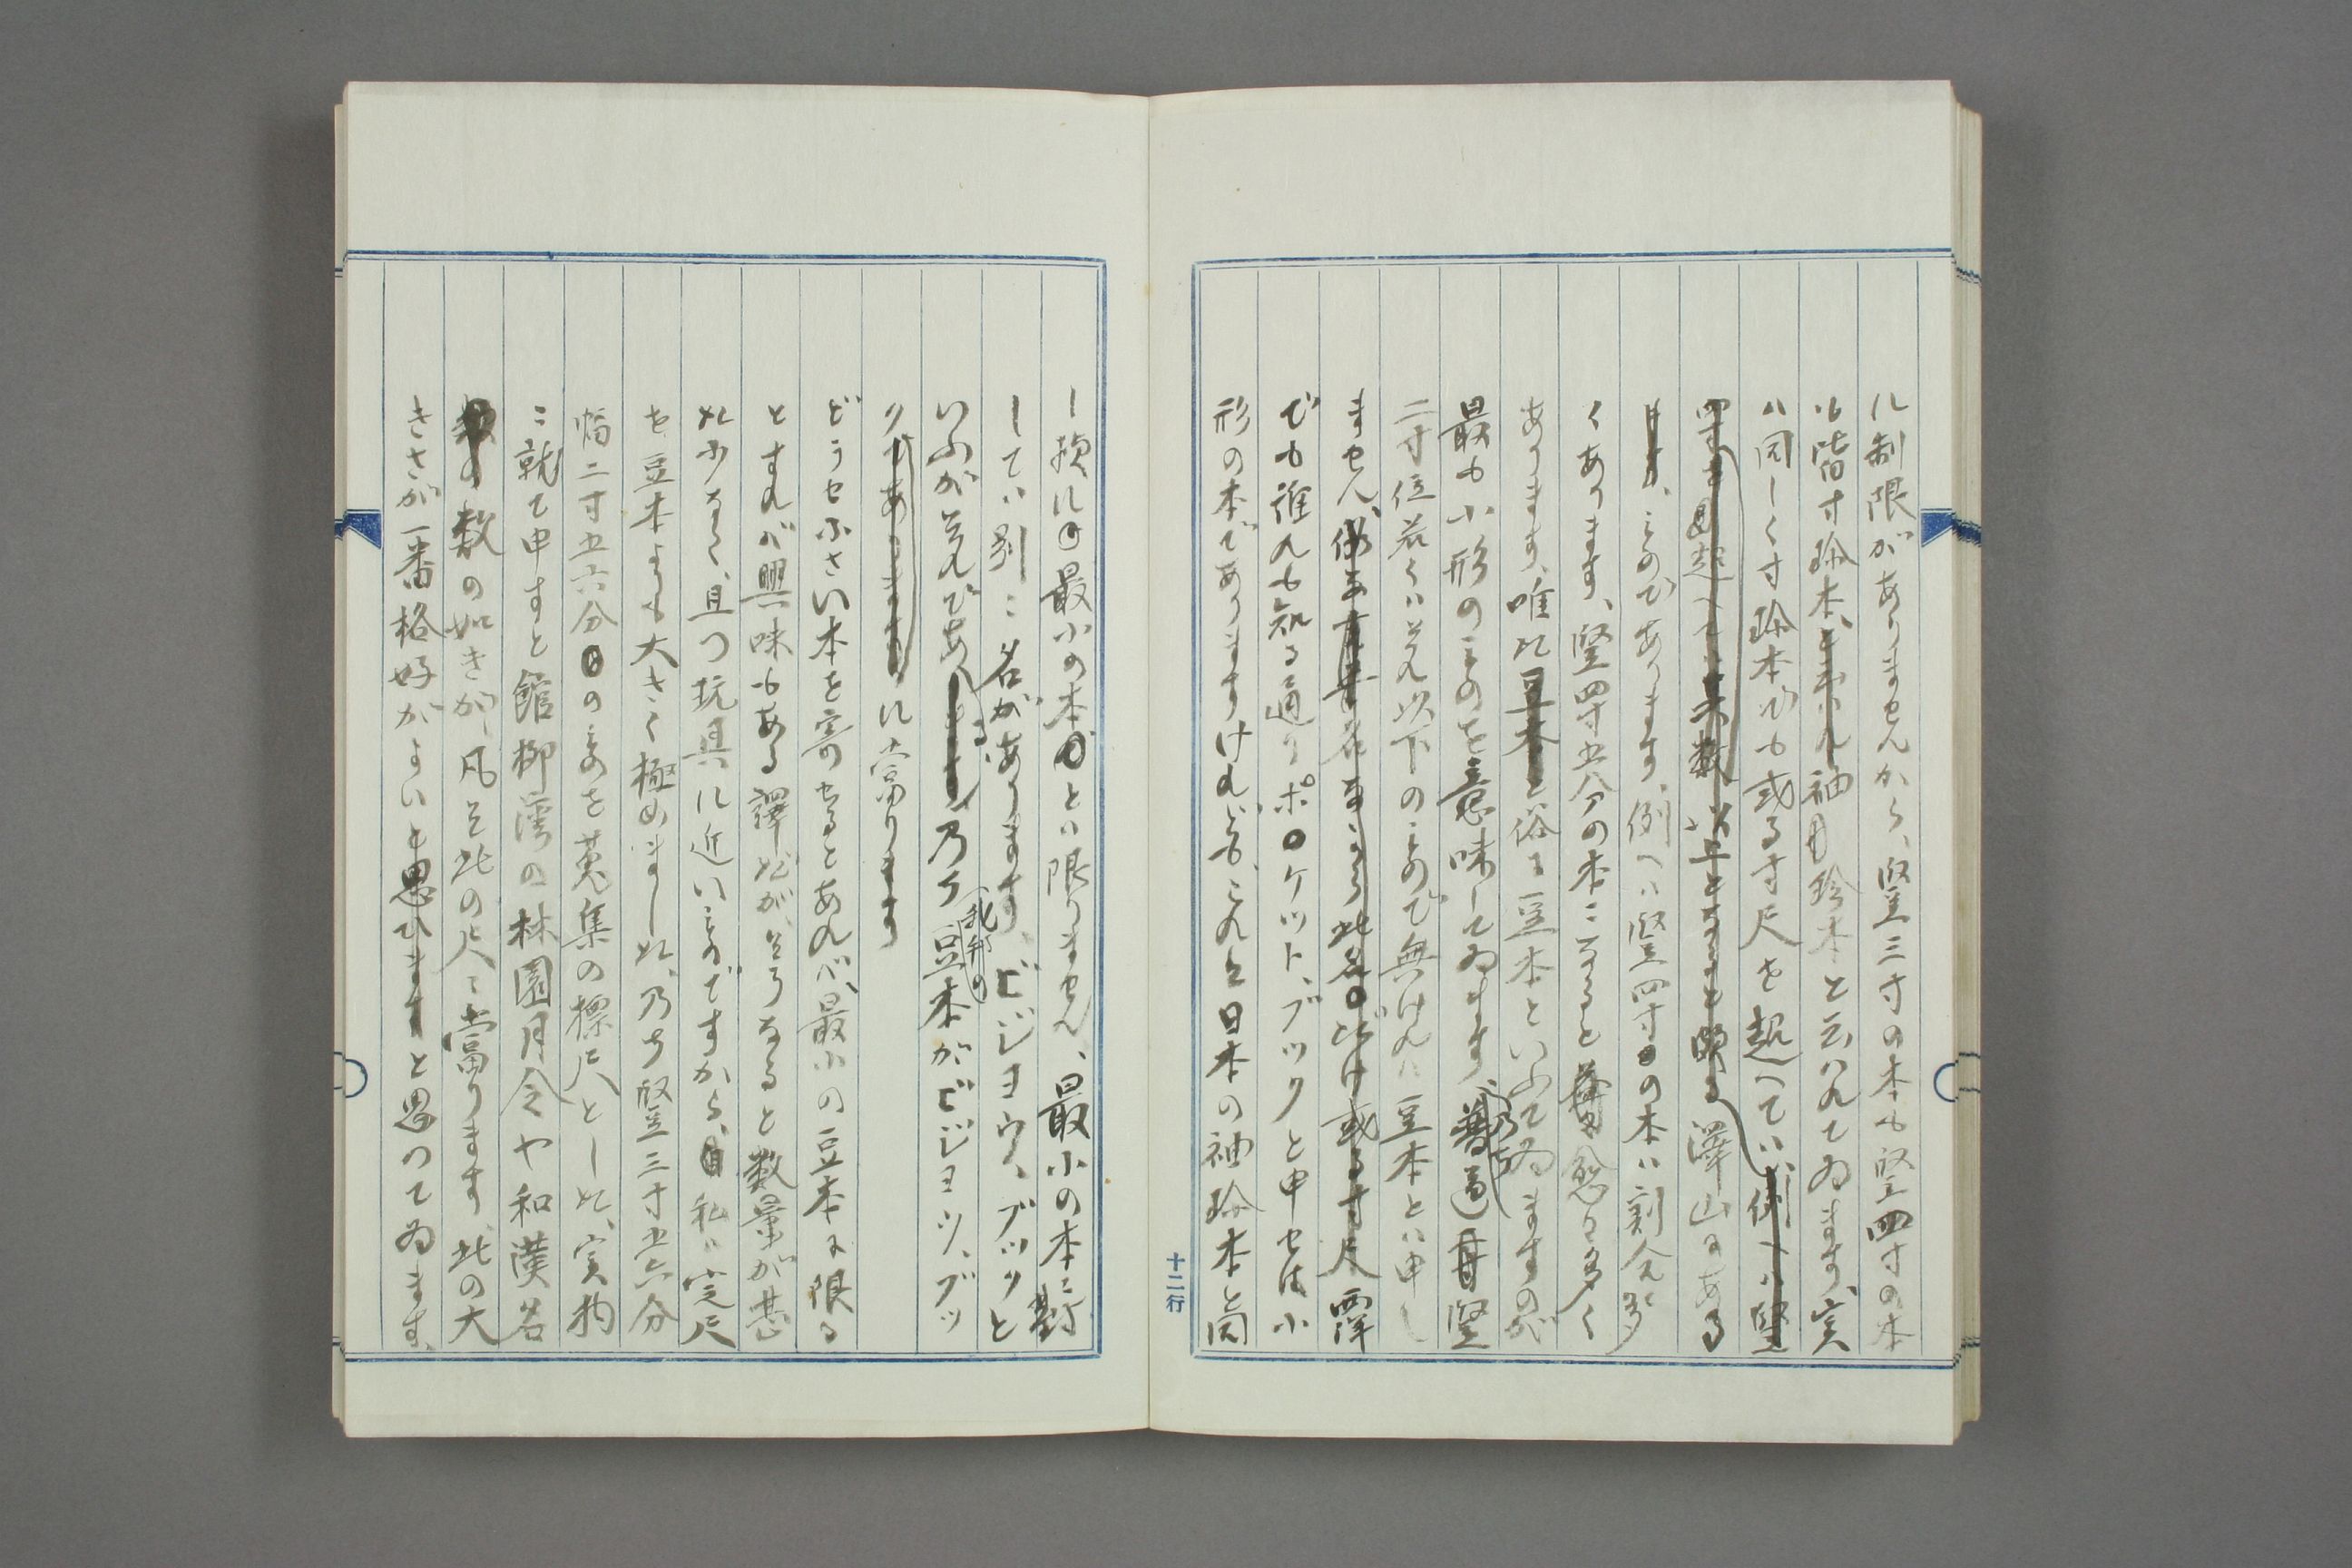 に制限がありませんから、竪三寸の本も竪四寸の本
も皆寸珍本、袖珍本と云はれてゐます、実
は同しく寸珍本でも或る寸尺を超へては、
沢山にある
ものであります、例へは竪四寸の本は割合に多
くあります、竪四寸五分の本になると愈々多く
あります、唯だ俗に豆本といふて居ますのが
最も小形のものを意味してゐます、乃ち竪
二寸位若くは其以下のもので無けれは豆本とは申し
ません、
でも誰れも知る通りポケット、ブックと申せは小
形の本でありますけれども、これは日本の袖珍本と同
し損に最小の本とは限りません、最小の本に対
しては別に名があります、ビジヨウ、ブックと
いふが其れである、乃ち我邦の豆本がビジヨウ、ブッ
クに当ります
どうせ小さい本を寄せるとあれバ、最小の豆本に限る
とすれバ興味もある訳だが、そうなると数量が甚
だ少なく、且つ玩具に近いものですから、私は寸尺
を豆本よりも大きく極めました、乃ち竪三寸五六分
幅二寸五六分のものを蒐集の標尺とした、実物
に就て申すと館柳湾の林園月令や和漢名
数の如きが、凡そ此の尺に当ります、此の大
きさが一番格好がよいと思つてゐます、
十二行